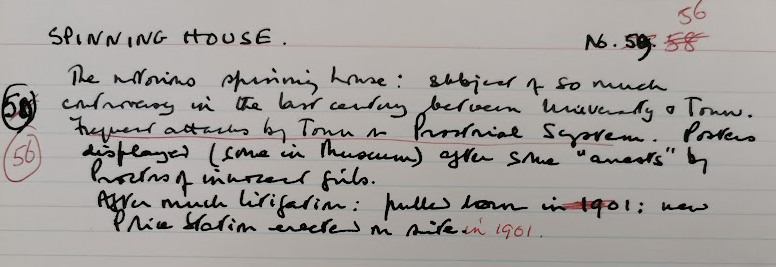 56
SPINNING HOUSE. No. 59. 58
The notorious spinning house: subject of so much
58 controversy in the last century between University & Town.
Frequent attacks by Town on Proctorial System. Posters
56 displayed (some in Museum) after some "arrests" by
Proctors of innocent girls.
After much litigation: pulled down in 1901: new
Police Station erected on site in 1901.